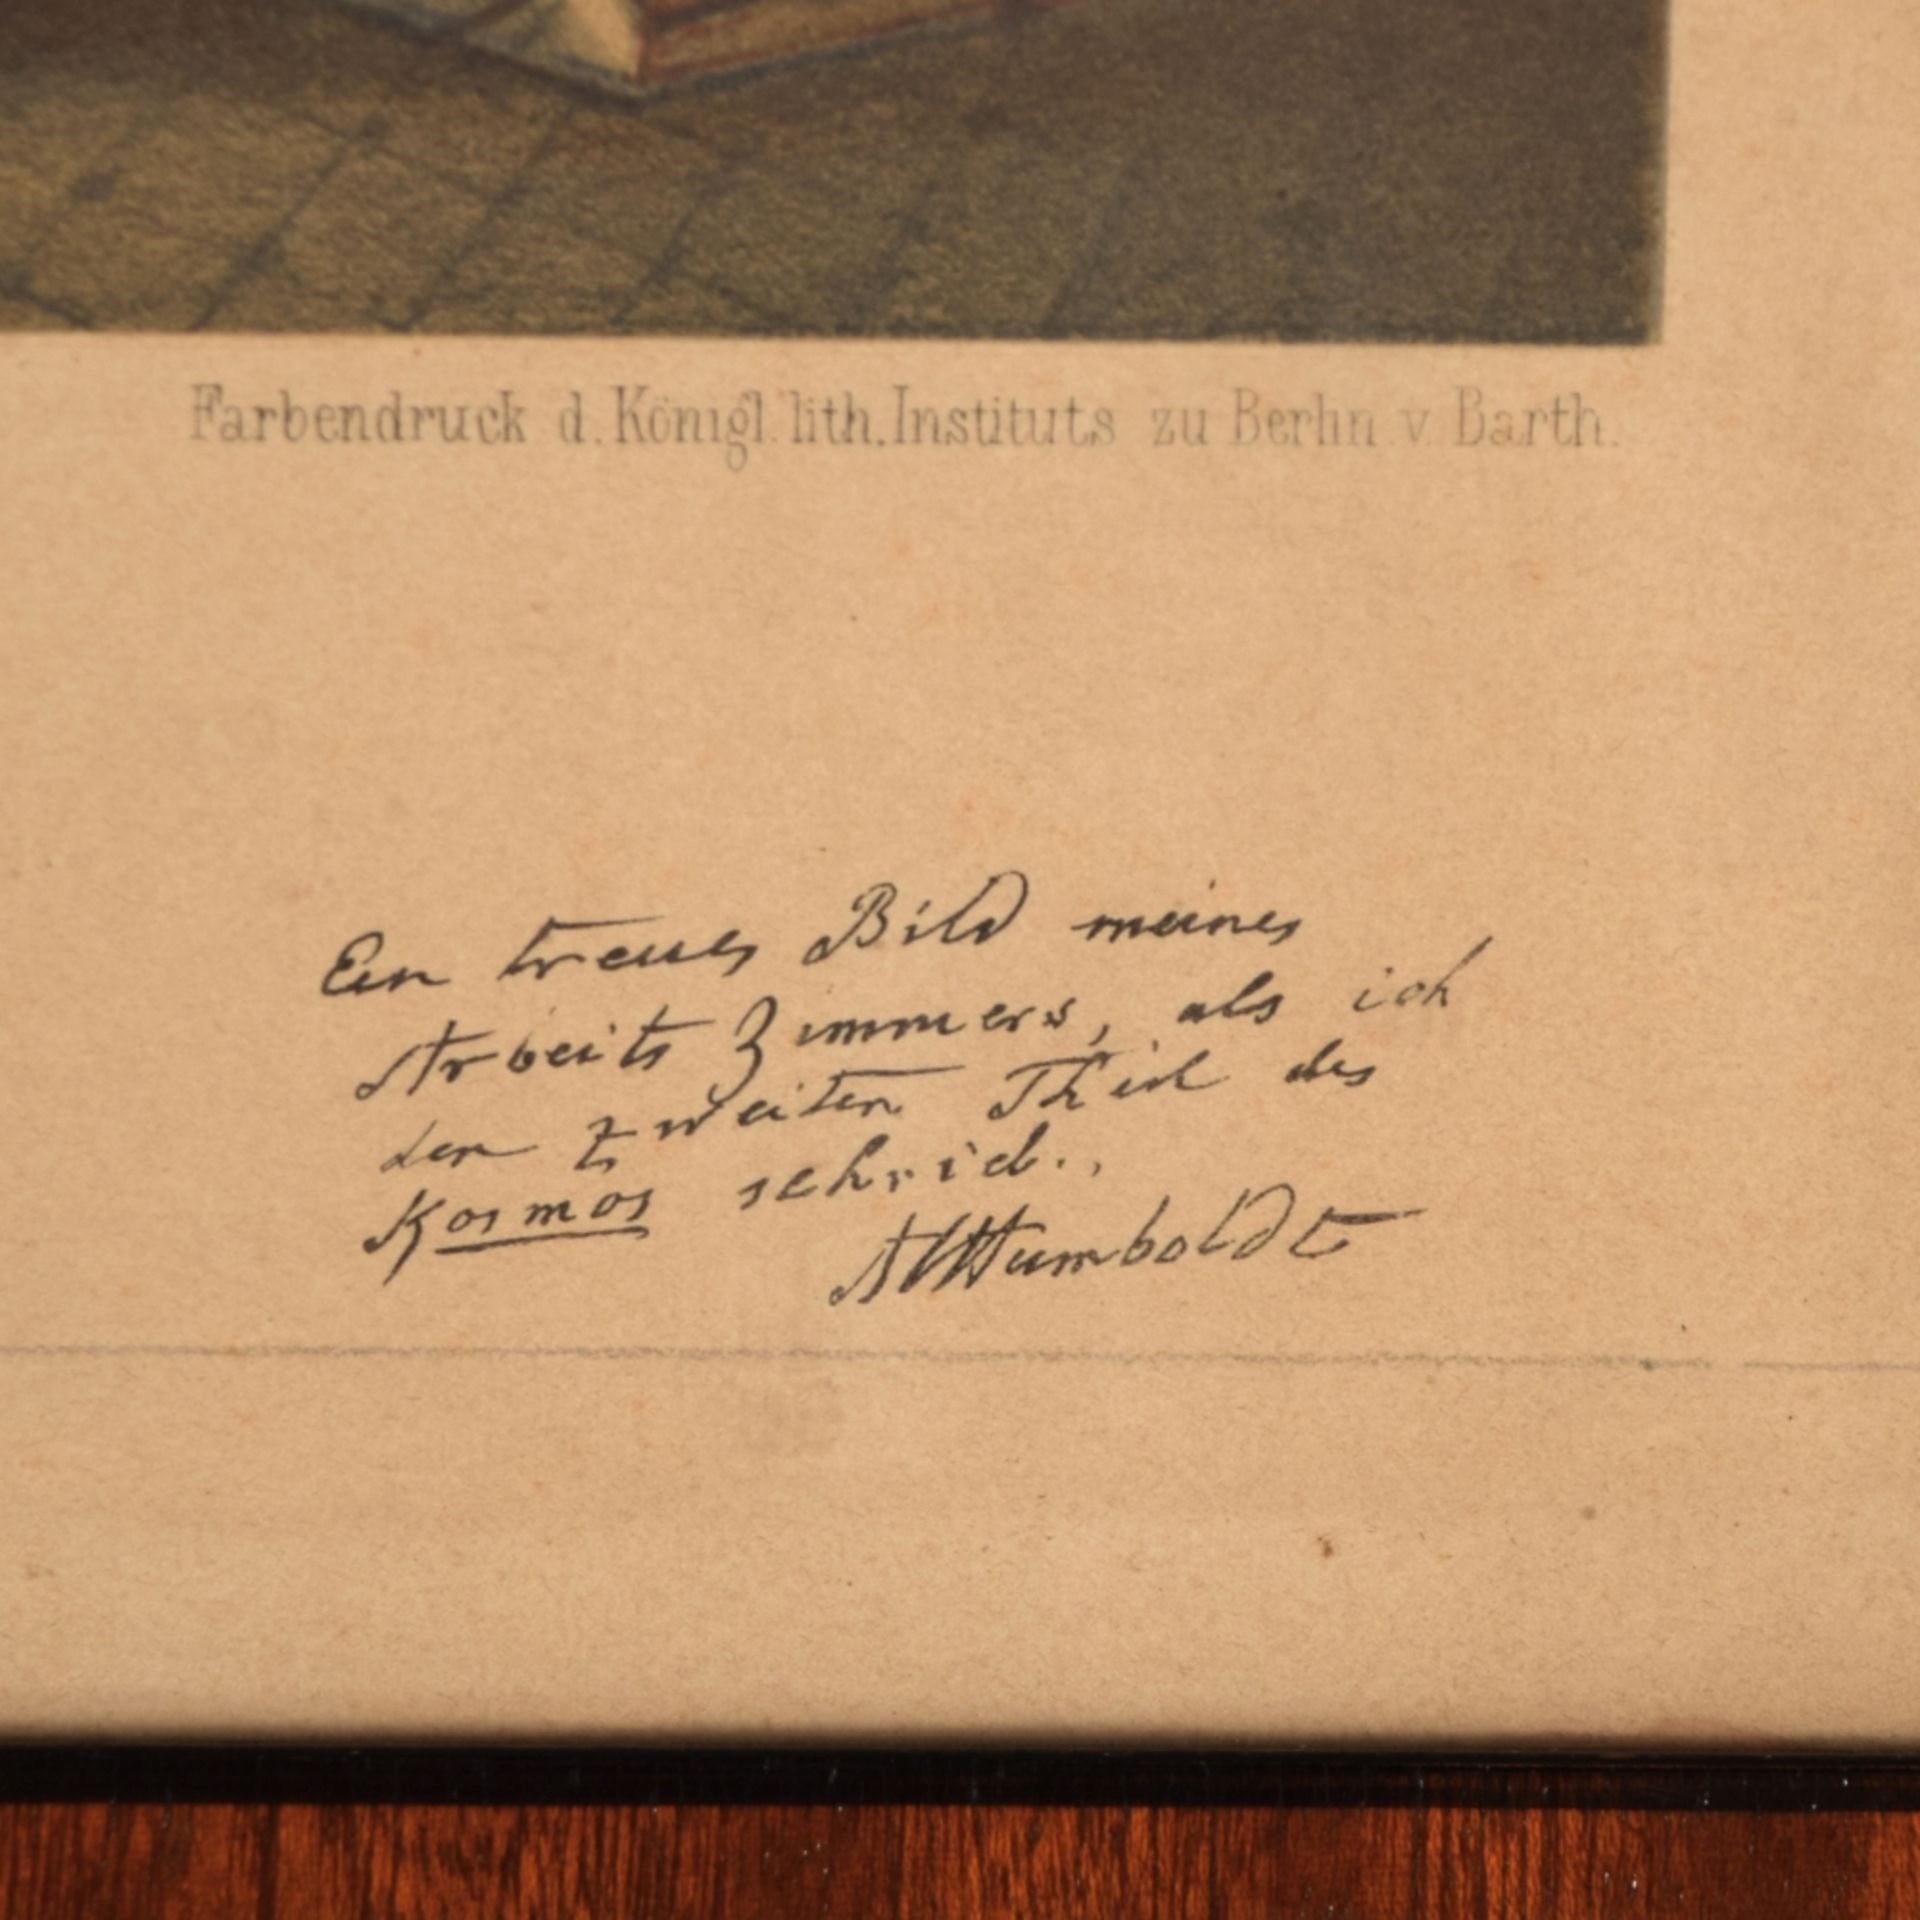 Farbendruck d. Königl. lith. Instituts zu Berlin v. Barth.
Ein treues Bild meines
Arbeits Zimmers, als ich
den zweiten Theil des
Kosmos schrieb.
AlHumboldt